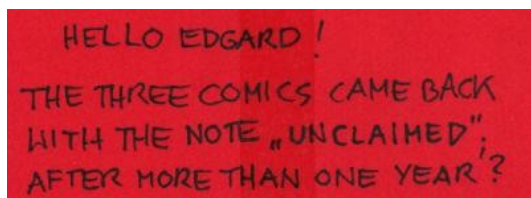 HELLO EDGARD!
THE THREE COMICS CAME BACK
WITH THE NOTE „UNCLAIMED“,
AFTER MORE THAN ONE YEAR?